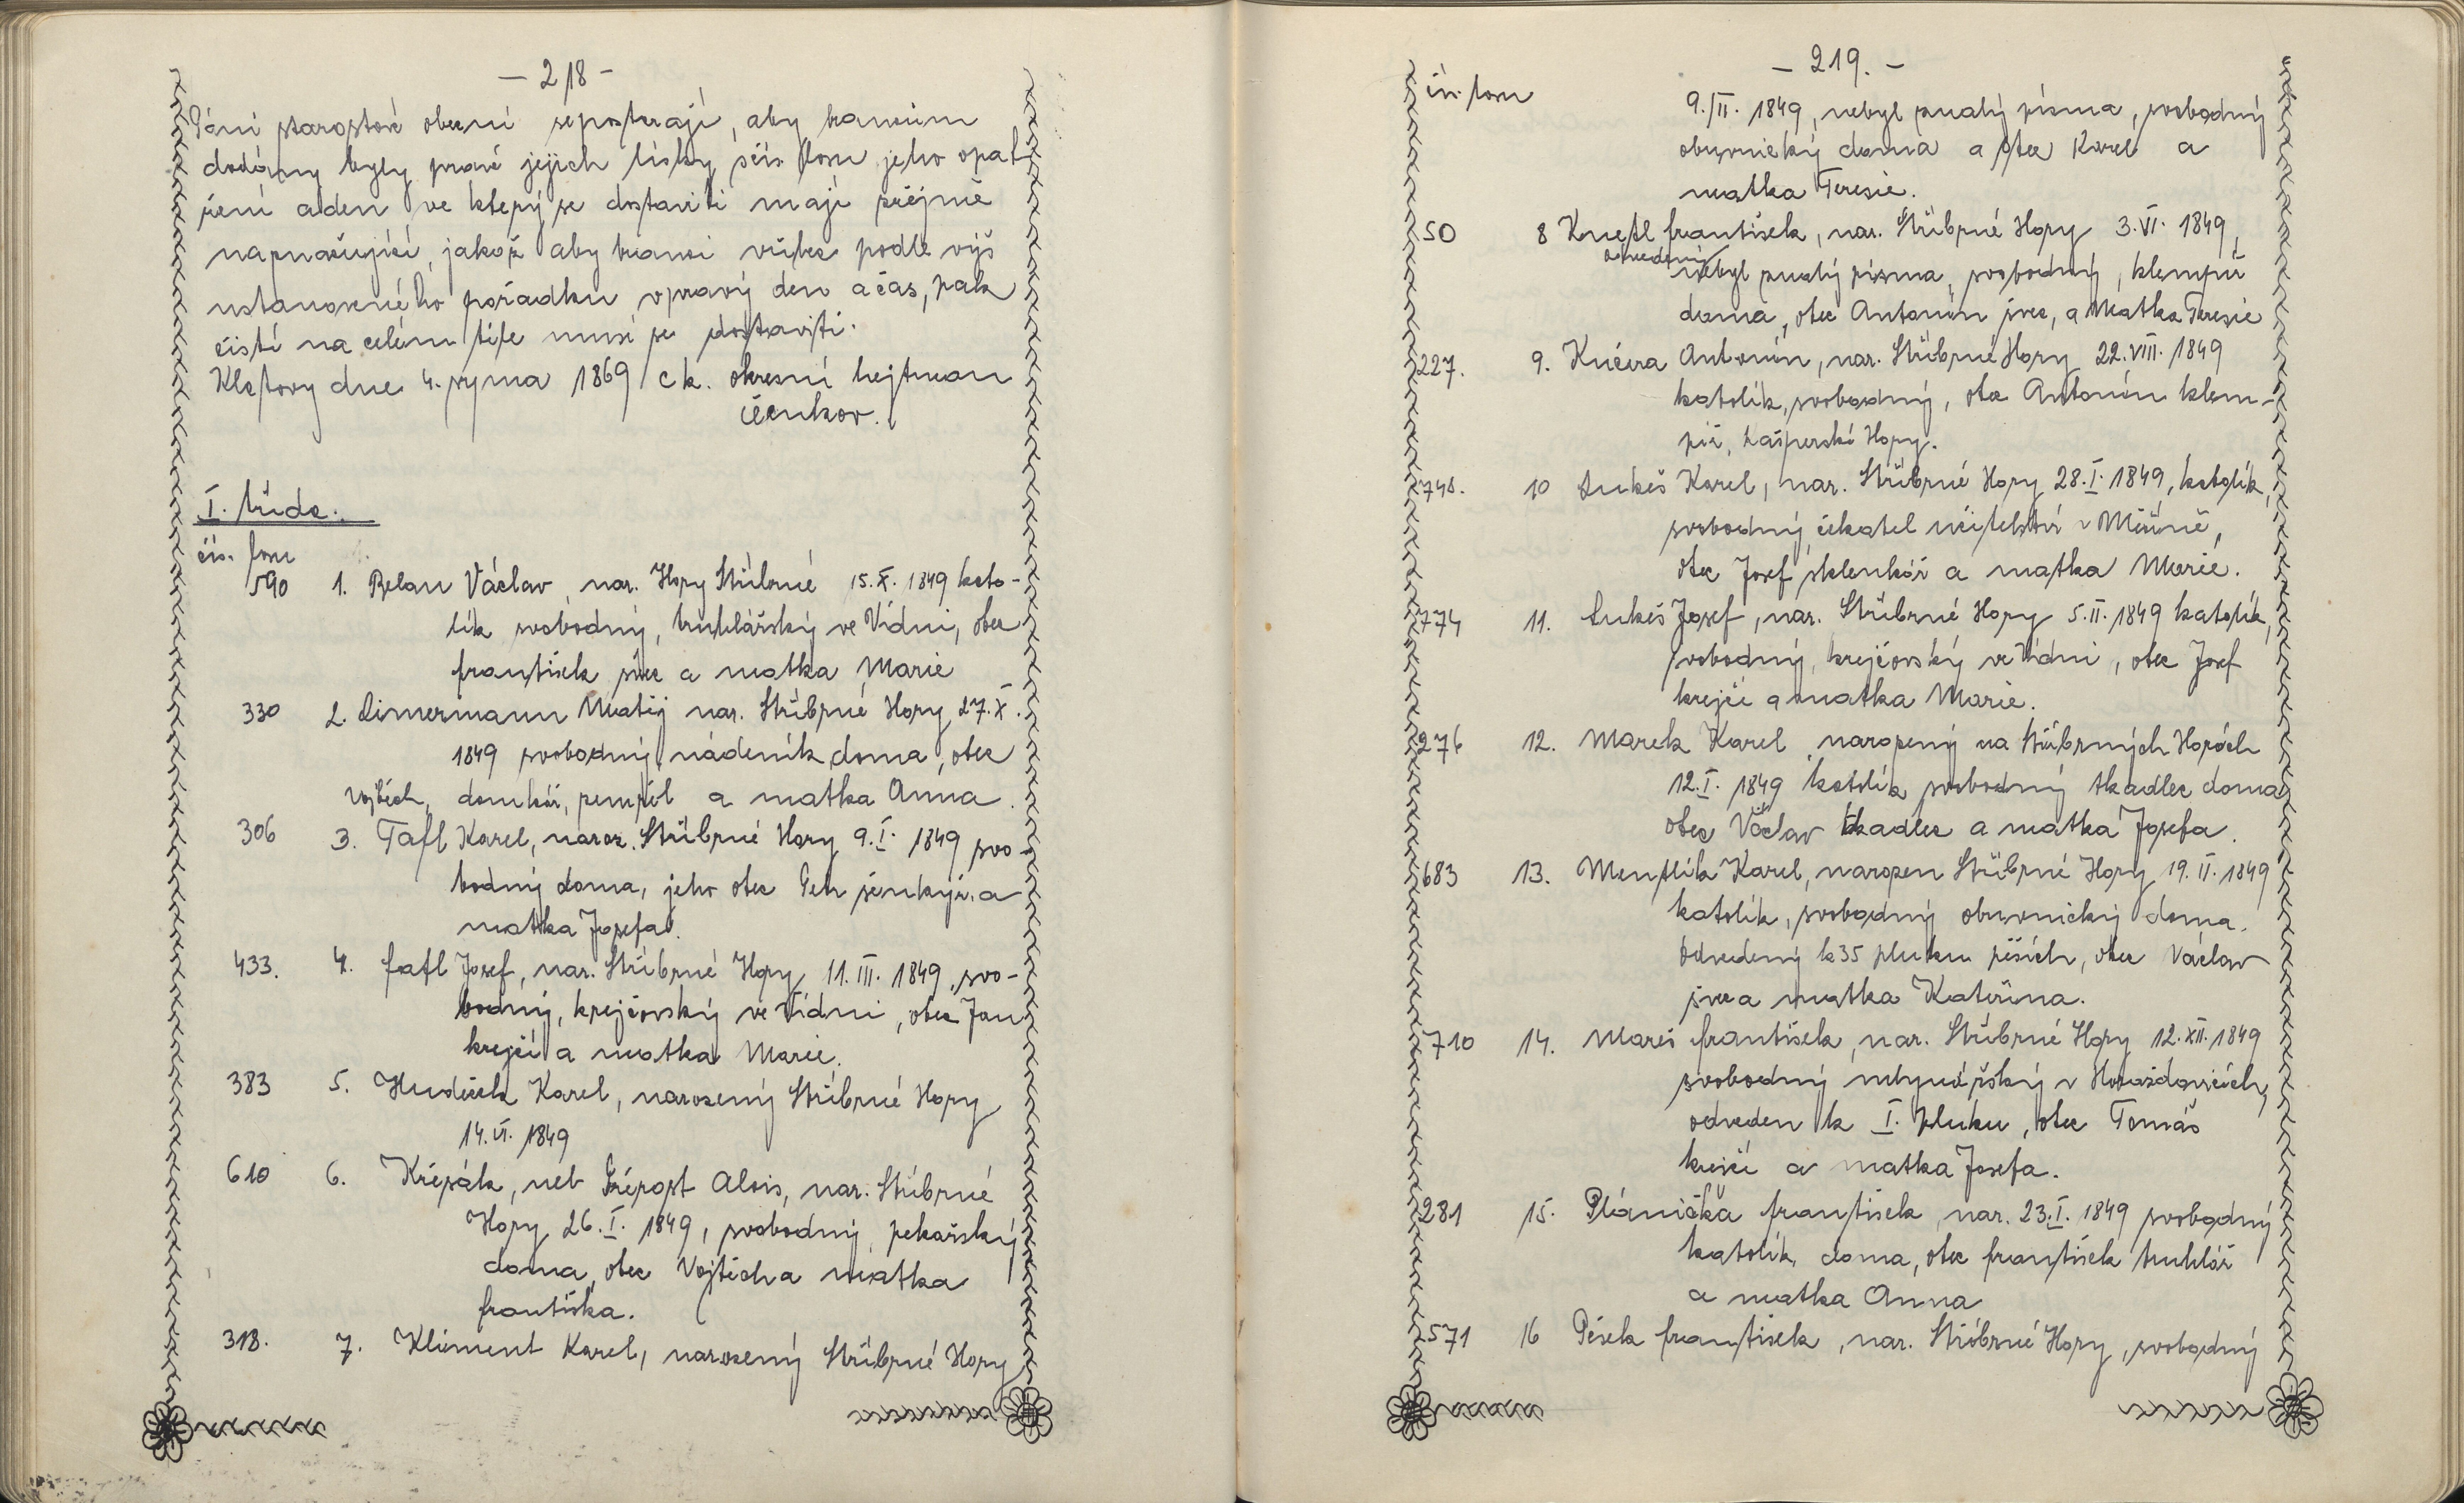 - 218 -
Páni starostové obecní se postarají, aby brancům
dodány byly právě jejich lístky, s čís. losu jeho opat
ření a den ve který se dostaviti mají přéjmě
naznačující, jakož aby branci vůbec podle výš
ustanoveného pořadku v pravý den a čas, pak
čistí na celém těle musí se dostaviti.
Klatovy dne 4. ryjna 1869 c k. okresní hejtman
Čenkov.
I. třída.
čís. losu
590 1. Belan Václav, nar. Hory Stříbrné 15. X. 1849 kato-
lík svobodný, truhlářský ve Vídni, otec
František švec a matka Marie
330 2. Cimermann Matěj nar. Stříbrné Hory 27. X.
1849 svobodný, nádeník doma, otec
Vojtěch, domkář, zemřel a matka Anna.
306 3. Tafl Karel, naroz. Stříbrné Hory 9. I. 1849 svo-
bodný doma, jeho otec Petr šenkýř. a
matka Josefa.
433. 4. Fafl Josef, nar. Stříbrné Hory 11. III. 1849, svo-
bodný, krejčovský ve Vídni, otec Jan
krejčí a matka Marie.
383 5. Hudeček Karel, narozený Stříbrné Hory
14. VI. 1849
610 6. Křepák, neb Alois, nar. Stříbrné
Hory 26. I. 1849, svobodný, pekařský
doma, otec Vojtěch a matka
Františka.
318. 7. Kliment Karel, narozený Stříbrné Hory
- 219. -
čís. losu
9./II. 1849, nebyl znalý písma, svobodný
obuvnický doma a otec Karel a
matka Teresie.
50 8 Knetl František, nar. Stříbrné Hory 3. VI. 1849,
odvedený
nebyl znalý písma, svobodný, klempíř
doma, otec Antonín švec, a Matka Teresie
227. 9. Kučera Antonín, nar. Stříbrné Hory 22. VIII. 1849
katolík, svobodný, otec Antonín klem-
píř, Kašperské Hory.
748. 10 Lukeš Karel, nar. Stříbrné Hory 28. I. 1849, katolík,
svobodný čekatel učitelství v Měčíně,
otec Josef sklenkář a matka Marie.
774 11. Lukeš Josef, nar. Stříbrné Hory 5. II. 1849 katolík,
svobodný, krejčovský ve Vídni, otec Josef
krejčí a matka Marie.
276 12. Marek Karel narozený na Stříbrných Horách
12. I. 1849 katolík svobodný tkadlec doma
otec Václav tkadlec a matka Josefa.
683 13. Mentlík Karel, narozen Stříbrné Hory 19. II. 1849
katolík, svobodný obuvnický doma.
Odvedený k 35 pluku pěších, otec Václav
švec a matka Kateřina.
710 14. Mareš František, nar. Stříbrné Hory 12. XII. 1849
svobodný mlynářský v Horažďovicích,
odveden k I. pluku, otec Tomáš
krejčí a matka Josefa.
281 15. Plánička František, nar. 23. I. 1849 svobodný
katolík doma, otec František truhlář
a matka Anna
571 16 Pešek František, nar. Stříbrné Hory, svobodný